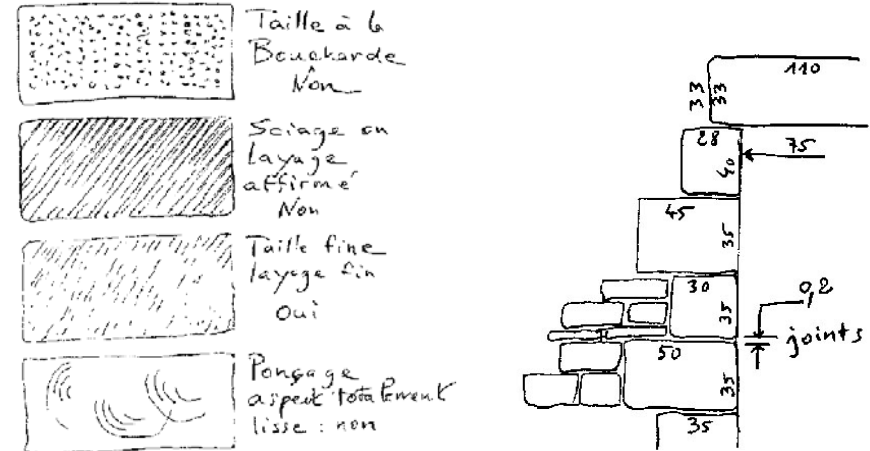 Taille à la
Boucharde
Non
Sciage ou
layage
affirmé
Non
Taille fine
layage fin
oui
Ponçage
aspect totalement
lisse : non
110
33
33
28
75
40
45
35
30
35
0,2
joints
50
35
35